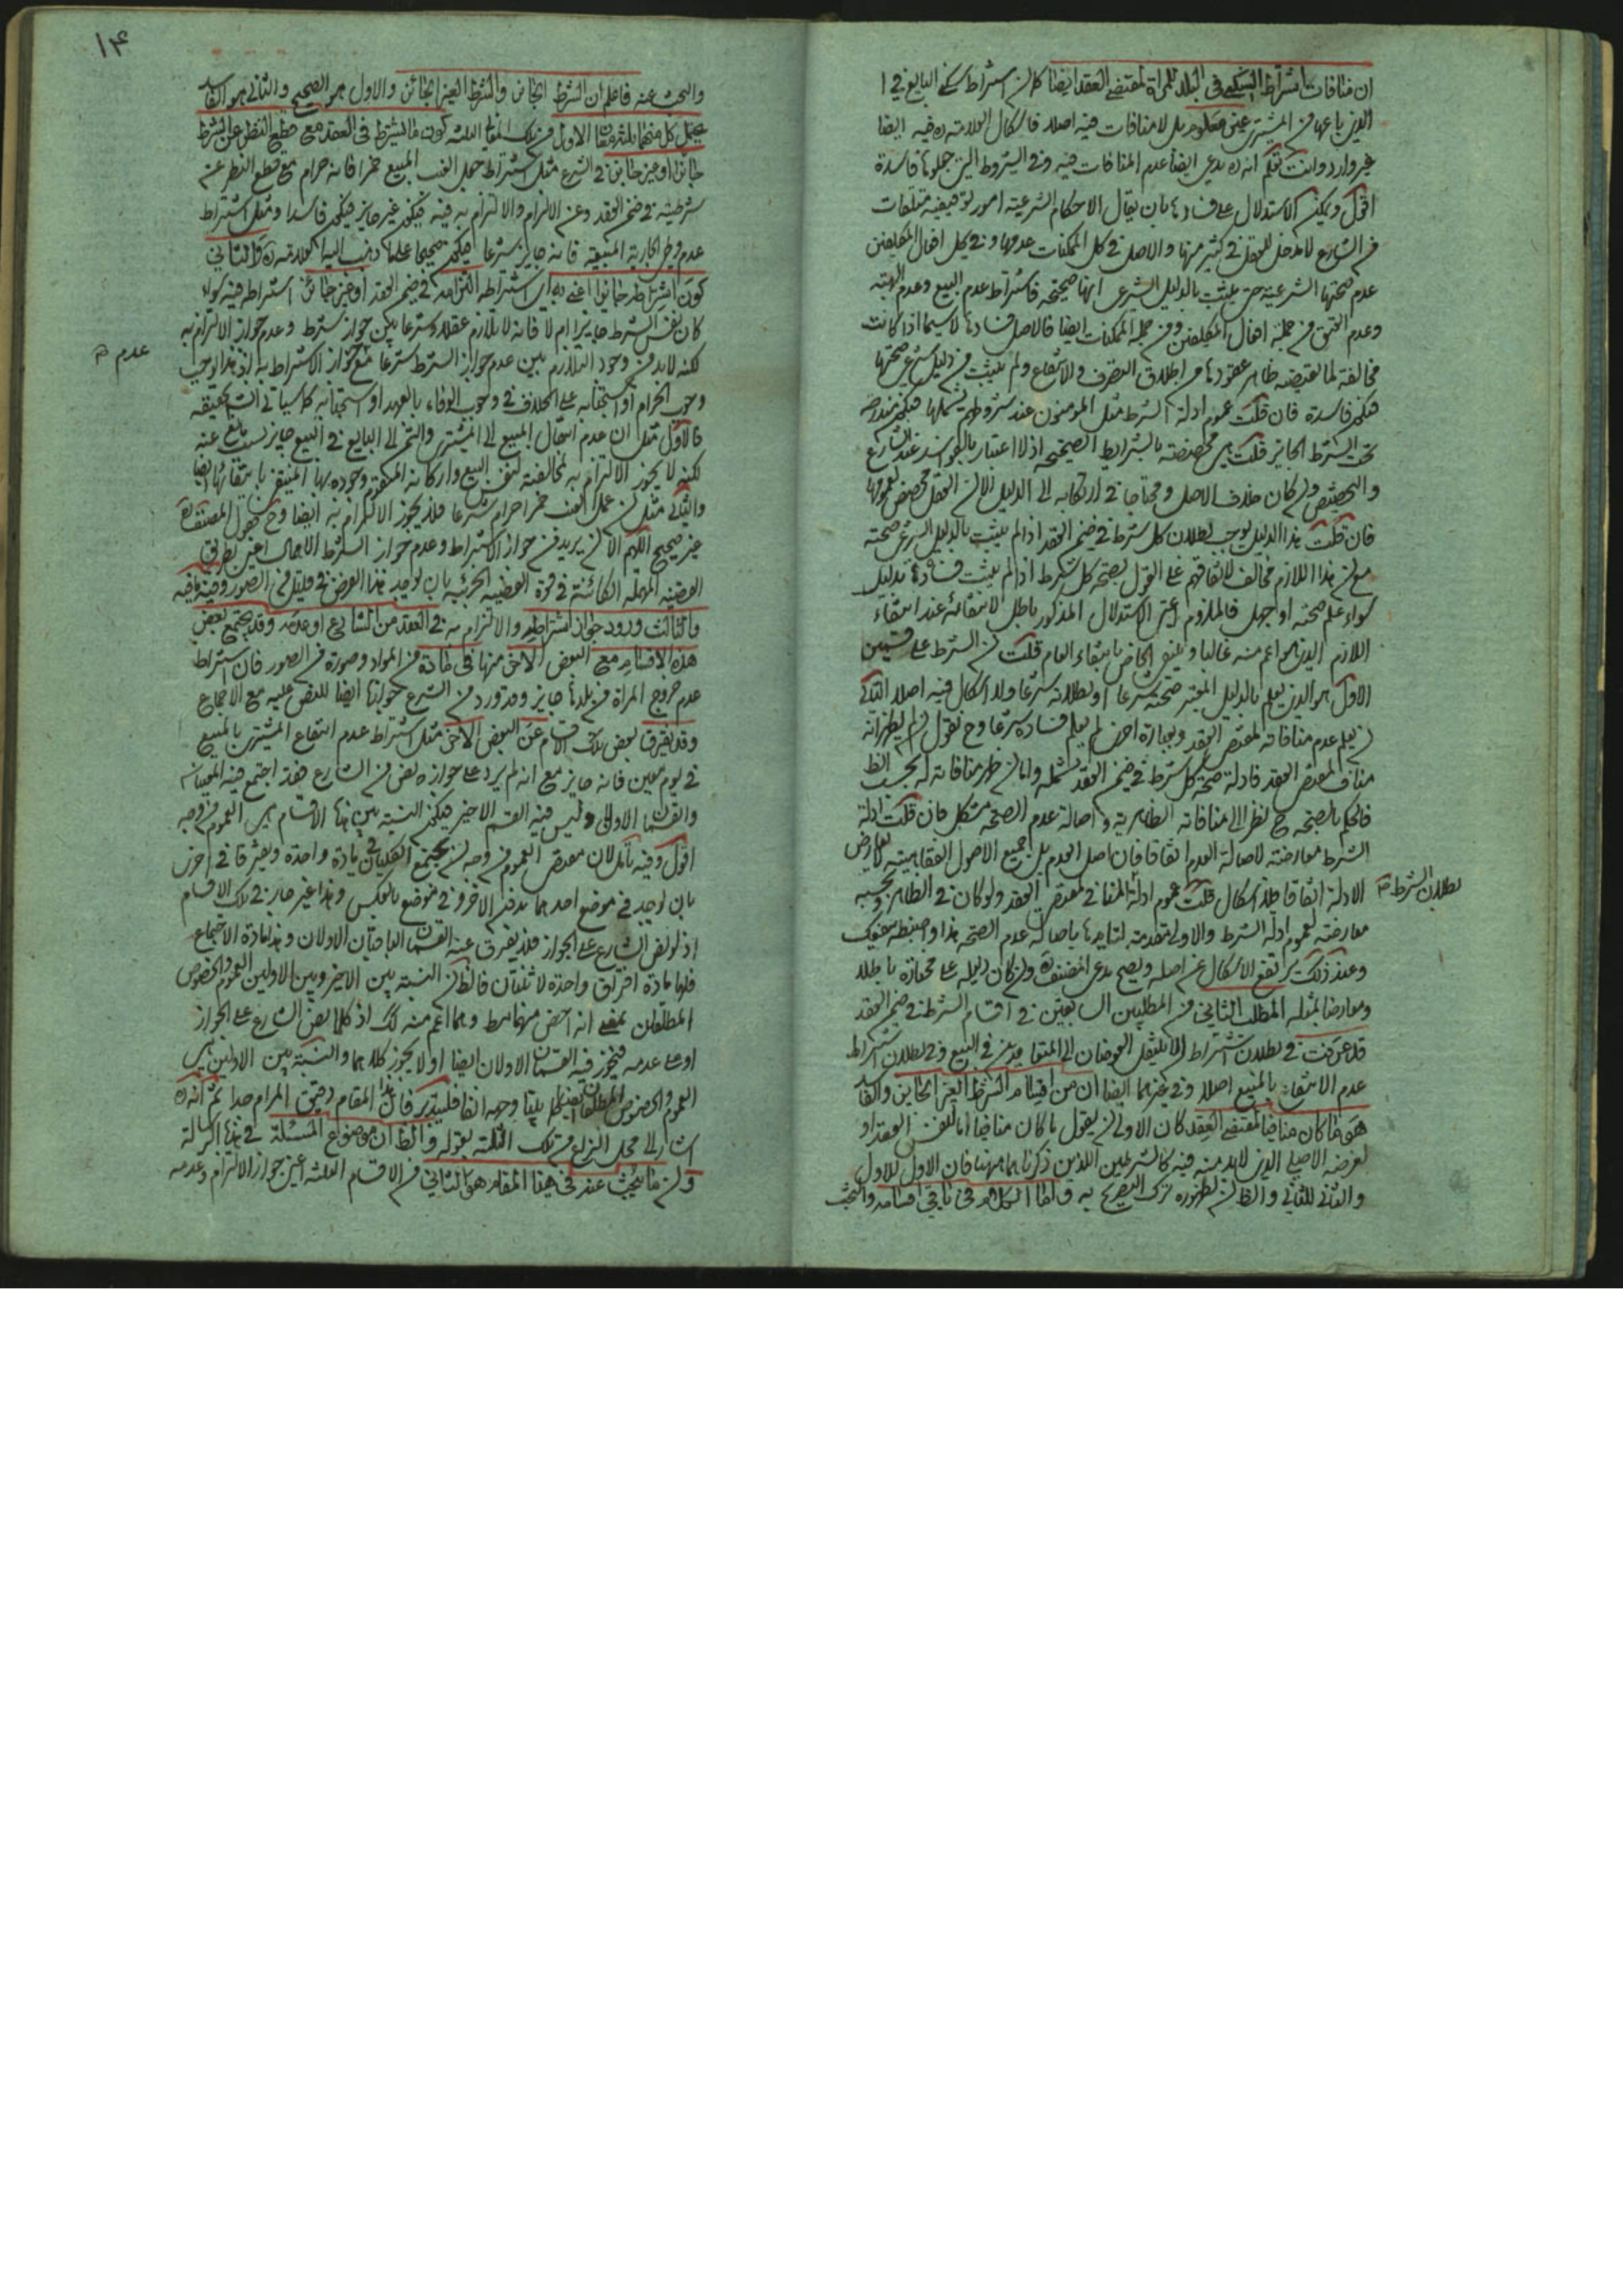 ان منافات اشتراط السكنى في البلد للمراة لمقتضى العقد ايضا كما ان اشتراط سكنى البايع في
الذي باعها من المشتري غير معلوم بل لا منافات فيه اصلا فاشكال العلامة ره فيه ايضا
غير وارد وانت تعلم انه ره يدعي ايضا عدم المنافات فيه وفي الشروط التي جعلوها فاسدة
اقول ويمكن الاستدلال على فسادها بان يقال الاحكام الشرعية امور توقيفية متلقات
من الشارع لا مدخل للعقل في كثير منها والاصل في كل الممكنات عدمها وفي كل افعال المكلفين
عدم صحتها الشرعية حتى يثبت بالدليل الشرعي انها صحيحة فاشتراط عدم البيع وعدم الهبة
وعدم العتق من جملة افعال المكلفين ومن جملة الممكنات ايضا فالاصل فسادها لا سيما اذا كانت
مخالفة لما يقتضيه ظاهر عقودها من اطلاق التصرف والانتفاع ولم يثبت من دليل شرعي صحتها
فيكون فاسدة فان قلت عموم ادلة الشرط مثل المؤمنون عند شروطهم يشملها فيكون مندرجة
تحت الشرط الجايز قلت هي مخصصة بالشرايط الصحيحة اذ لا اعتبار بالفواسد عند الشارع
والتخصيص وان كان خلاف الاصل ومحتاجا في ارتكابه الى الدليل الا ان العقل مخصص لعمومها
فان قلت هذا الدليل يوجب بطلان كل شرط في ضمن العقد اذا لم يثبت بالدليل الشرعي صحته
مع ان هذا اللازم مخالف لاتفاقهم على القول بصحة كل شرط اذا لم يثبت فساده بدليل
سواء علم صحته او جهل فالملزوم اعني الاستدلال المذكور باطل لانتفائه عند انتفاء
اللازم الذي هو اعم منه غالبا وينتفي الخاص بانتفاء العام قلت ان الشرط على قسمين
الاول هو الذي يعلم بالدليل المعتبر صحته شرعا او بطلانه شرعا ولا اشكال فيه اصلا الثاني
ان يعلم عدم منافاته لمقتضى العقد وبعبارة اخرى لم يعلم فساده شرعا وح نقول ان لم يظهر انه
مناف لمقتضى العقد فادلة صحة كل شرط في ضمن العقد تشمله واما ان ظهر منافاته له بحسب الظ
فالحكم بالصحة ح نظرا الى منافاته الظاهرية واصالة عدم الصحة مشكل فان قلت ادلة
الشرط معارضة لاصالة العدم اتفاقا فان اصل العدم بل جميع الاصول العقابيته لا يعارض
الادلة اتفاقا فلا اشكال قلت عموم ادلة المنافي لمقتضى العقد ولو كان في الظاهر وبحسبه
بطلان الشرط صح
معارضة لعموم ادلة الشرط والاولى مقدمة لتايدها باصالة عدم الصحة هذا واحفظه ينفعك
وعند ذلك يرتفع الاشكال عن اصله ويصح مدعى المصنف ره وان كان دليله على مختاره باطلا
ومعارضا بمثله المطلب الثاني من المطلبين السابقين في اقسام الشرط في ضمن العقد
قد عرفت في بطلان اشتراط ان لا ينتقل العوضان الى المتعاقدين في البيع وفي بطلان اشتراط
عدم الانتفاع بالمبيع اصلا وفي غيرهما ايضا ان من اقسام الشرط الغير الجايز والفاسد
هو ما كان منافيا لمقتضى العقد كان الاولى ان يقول ما كان منافيا اما لنفس العقد او
لغرضه الاصلي الذي لا بد منه فيه كالشرطين اللذين ذكرناهما ههنا فان الاول للاول
والثاني للثاني والظ ان لظهوره ترك التصريح به واما الكلام في باقي اقسامه والبحث
۱۴
والبحث عنه فاعلم ان الشرط الجائز والشرط الغير الجائز والاول هو الصحيح والثاني هو الفاسد
يحتمل كل منهما ثلثة معان الاول من تلك المعاني الثلثة كون ما اشترط في العقد مع قطع النظر عن الشرط
جائزا او غير جائز في الشرع مثل اشتراط جعل العنب المبيع خمرا فانه حرام مع قطع النظر عن
شرطيته في ضمن العقد وعن الالزام والالتزام به فيه فيكون غير جايز فيكون فاسدا ومثل اشتراط
عدم وطي الجارية المبيعة فانه جايز شرعا فيكون صحيحا على ما ذهب اليه العلامة ره والثاني
كون اشتراطه جائزا اعني به اي اشتراطه التزامه في ضمن العقد او غير جائز اشتراطه فيه سواء
كان نفس الشرط جايزا ام لا فانه لا يلازم عقلا وشرعا بين جواز شرط وعدم جواز الالتزام به
لكنه لا بد من وجود التلازم بين عدم جواز الشرط شرعا مع عدم جواز الاشتراط به
عدم صح
وجوب الحرام او استحبابه على الخلاف في وجوب الوفاء بالعهد او استحبابه كما سياتي انش تحقيقه
فالاول مثل ان عدم انتقال المبيع الى المشتري والثمن الى البايع في البيع جايز
لكنه لا يجوز الالتزام به لمخالفته لنفس البيع واركانه المتقوم وجوده بها المنتفي بانتفائها ايضا
والثاني مثل ان عمل العنب خمرا حرام شرعا فلا يجوز الالتزام به ايضا وح فقول المصنف ره
غير صحيح اللهم الا ان يريد من جواز الاشتراط وعدم جواز الشرط الاجمال اعني بطريق
القضية المهملة الكائنة في قوة القضية الجزئية بان يوجد هذا الفرض في قليل من الصور وفيه ما فيه
والثالث ورود جواز اشتراطه والالتزام به في العقد من الشارع او عدمه وقد يجتمع بعض
هذه الاقسام مع البعض الاخر منها في مادة من المواد وصورة من الصور فان اشتراط
عدم خروج المراة من بلدها جايز وقد ورد من الشرع جوازها ايضا للنص عليه مع الاجماع
وقد يفترق بعض تلك الاقسام عن البعض الاخر مثل اشتراط عدم انتفاع المشتري بالمبيع
في يوم معين فانه جايز مع انه لم يرد على جوازه نص من الشارع فقد اجتمع فيه المعنيان
والقسمان الاولان وليس فيه القسم الاخير فيكون النسبة بين هذه الاقسام هي العموم من وجه
اقول وفيه تامل لان مقتضى العموم من وجه ان يجتمع الكليان في مادة واحدة ويفترقا في اخرى
بان يوجد في موضع احدهما بدون الاخر وفي موضع بالعكس وهذا غير جار في تلك الاقسام
اذ لو نص الشارع على الجواز فلا يفترق عنه القسمان الباقيان الاولان وهذا مادة الاجتماع
فلها مادة افتراق واحدة لا ثنتان فالظ ان النسبة بين الاخير وبين الاولين العموم والخصوص
المطلقان بمعنى انه اخص منهما مط وهما اعم منه كك اذ كلما نص الشارع على الجواز
او على عدمه فيجوز فيه القسمان الاولان ايضا او لا يجوز كلاهما والنسبة بين الاولين هي
العموم والخصوص المطلقان ايضا كما بينا وجهه انفا فليتدبر فان هذا المقام دقيق المرام جدا ثم انه ره
اشار الى محل النزاع من تلك الثلثة بقوله والظ ان موضوع المسئلة في هذه الرسالة
وان ما يبحث عنه في هذا المقام هو الثاني من الاقسام الثلثة اعني جواز الالتزام وعدمه